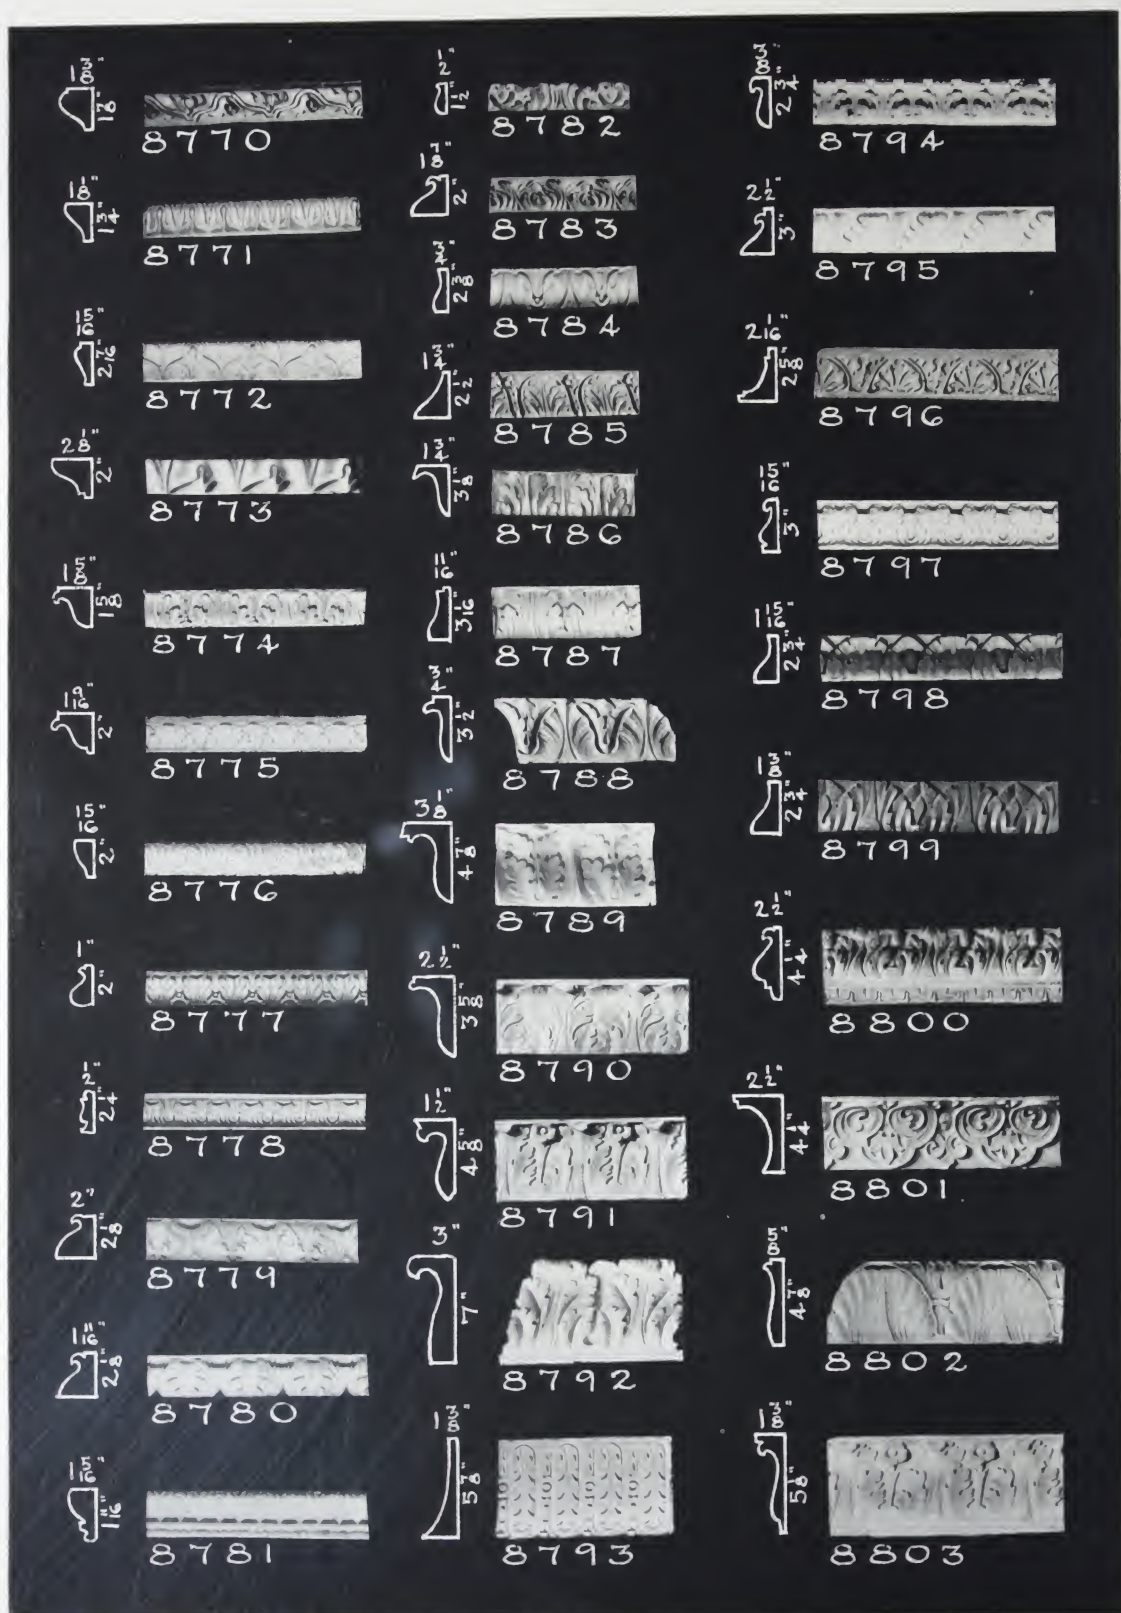 1 3/8"
1 7/8"
8770
1 1/8"
1 3/4"
8771
15/16"
2 7/16"
8772
2 1/8"
2"
8773
1 5/8"
1 5/8"
8774
1 9/16"
2"
8775
15/16"
2"
8776
1"
2"
8777
1/2"
2 1/4"
8778
2"
2 1/8"
8779
1 11/16"
2 1/8"
8780
1 5/16"
1 11/16"
8781
1/2"
1 1/2"
8782
1 7/8"
2"
8783
3/4"
2 3/8"
8784
1 3/4"
2 1/2"
8785
1 3/4"
3 1/8"
8786
11/16"
3 1/16"
8787
3/4"
3 1/2"
8788
3 1/8"
4 7/8"
8789
2 1/2"
3 5/8"
8790
1 1/2"
4 5/8"
8791
3"
7"
8792
1 3/8"
5 7/8"
8793
3/8"
2 3/4"
8794
2 1/2"
3"
8795
2 1/16"
2 5/8"
8796
15/16"
3"
8797
1 15/16"
2 3/4"
8798
1 3/8"
2 3/4"
8799
2 1/2"
4 1/4"
8800
2 1/2"
4 1/4"
8801
5/8"
4 7/8"
8802
1 3/8"
5 1/8"
8803